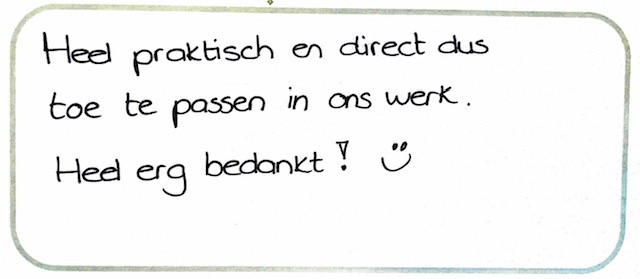 Heel praktisch en direct dus
toe te passen in ons werk.
Heel erg bedankt! ü